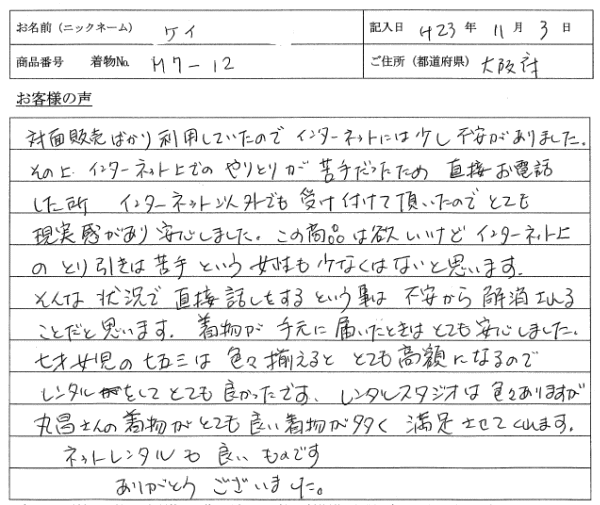 お名前（ニックネーム） ケイ 記入日 H23年 11月 3日
商品番号 着物No. M7-12 ご住所（都道府県） 大阪府
お客様の声
対面販売ばかり利用していたのでインターネットには少し不安がありました。
その上インターネット上でのやりとりが苦手だったため 直接お電話
した所 インターネット以外でも受け付けて頂いたのでとても
現実感があり安心しました。この商品は欲しいけどインターネット上
のとり引きは苦手という女性も少なくはないと思います。
そんな状況で直接話しをするという事は不安から解消される
ことだと思います。着物が手元に届いたときはとても安心しました。
七才女児の七五三は色々揃えるととても高額になるので
レンタルをしてとても良かったです、レンタルスタジオは色々ありますが
丸昌さんの着物がとても良い着物が多く満足させてくれます。
ネットレンタルも良いものです
ありがとうございました。